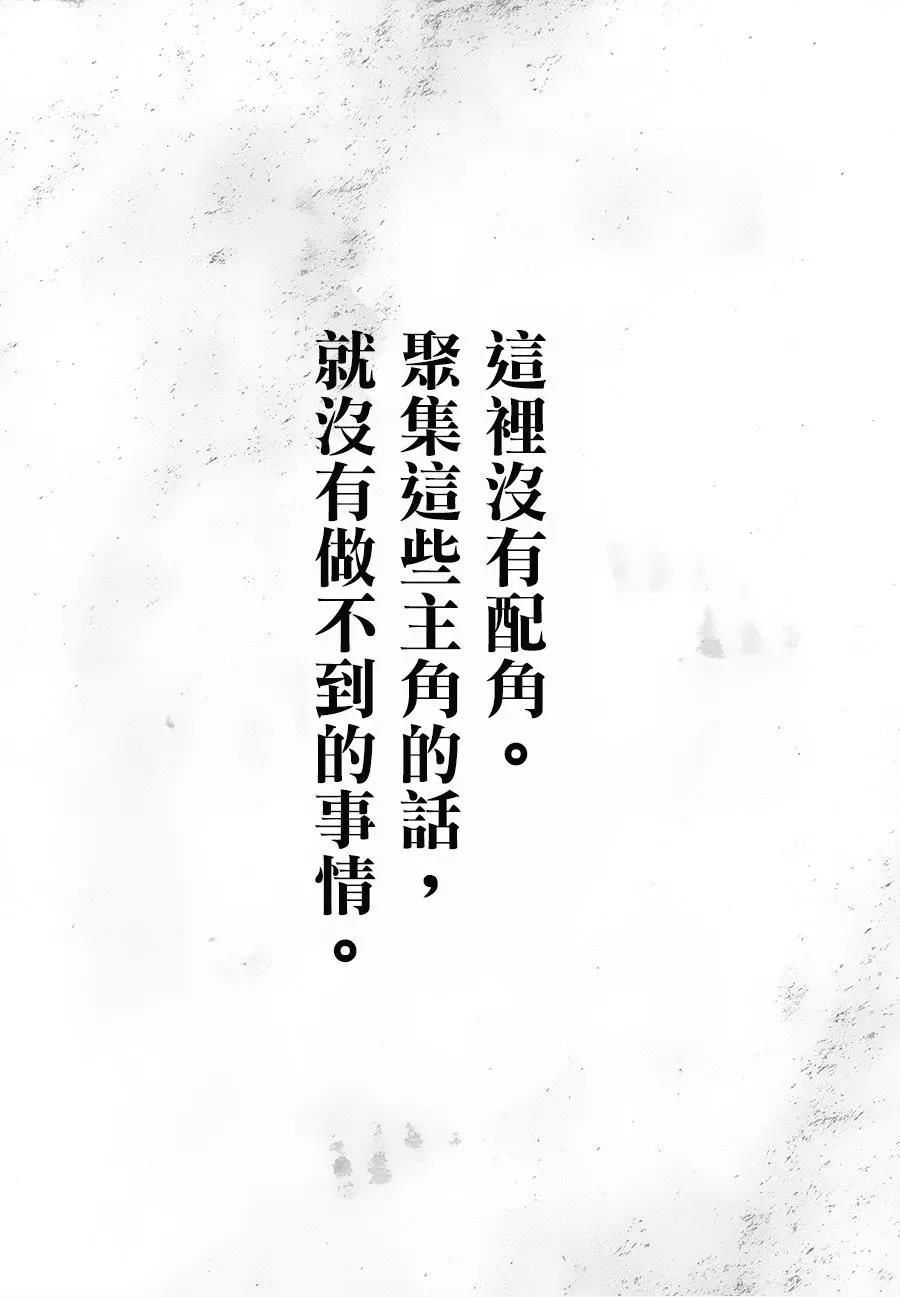 這裡沒有配角。
聚集這些主角的話，
就沒有做不到的事情。